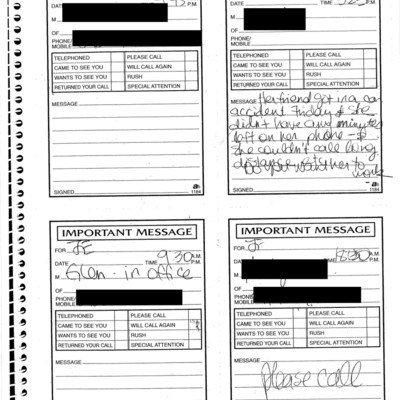 DATE
M
OF
PHONE/
MOBILE
TELEPHONED PLEASE CALL
CAME TO SEE YOU WILL CALL AGAIN
WANTS TO SEE YOU RUSH
RETURNED YOUR CALL SPECIAL ATTENTION
MESSAGE
SIGNED 1184
DATE TIME P.M.
M
OF
PHONE/
MOBILE
TELEPHONED PLEASE CALL
CAME TO SEE YOU WILL CALL AGAIN
WANTS TO SEE YOU RUSH
RETURNED YOUR CALL SPECIAL ATTENTION
MESSAGE Her friend got in a car
accident Friday & she
didn't have any minutes
left on her phone
She couldn't call long
distance
Do you want her to
work
SIGNED 1184
IMPORTANT MESSAGE
FOR JE
DATE TIME 9:30 A.M.
P.M.
M Glen - in office
OF
PHONE/
MOBILE
TELEPHONED PLEASE CALL
CAME TO SEE YOU WILL CALL AGAIN
WANTS TO SEE YOU RUSH
RETURNED YOUR CALL SPECIAL ATTENTION
MESSAGE
IMPORTANT MESSAGE
FOR JE
DATE TIME A.M.
P.M.
M
OF
PHONE/
MOBILE
TELEPHONED PLEASE CALL
CAME TO SEE YOU WILL CALL AGAIN
WANTS TO SEE YOU RUSH
RETURNED YOUR CALL SPECIAL ATTENTION
MESSAGE
please call